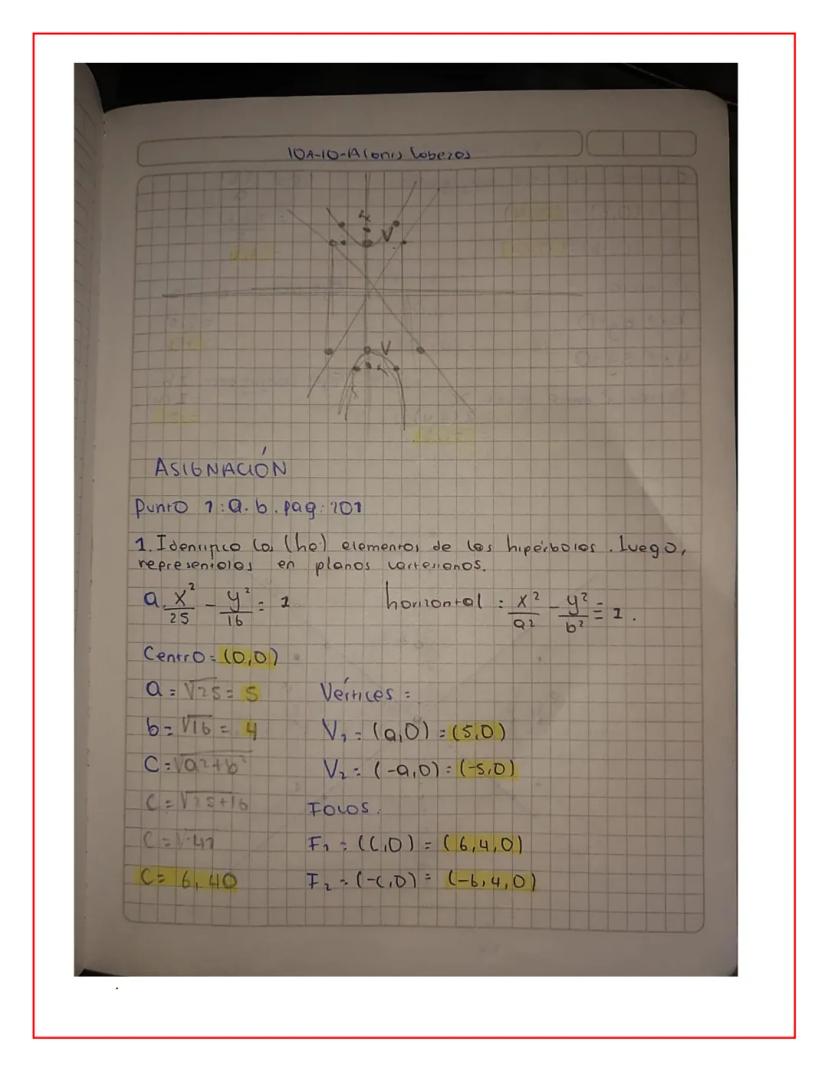 10A-10-Alonis Cobezos
V
V
ASIGNACIÓN
Punto 1: a. b. pag: 101
1. Identifico los (ho) elementos de las hipérbolas. Luego,
represéntolos en planos cartesianos.
a. x²/25 - y²/16 = 1 horizontal : x²/a² - y²/b² = 1.
Centro = (0,0)
a = √25 = 5 Vértices =
b = √16 = 4 V₁ = (a,0) = (5,0)
C = √a²+b² V₂ = (-a,0) = (-5,0)
C = √25+16 Focos.
C = √41 F₁ = (C,0) = (6,4,0)
C = 6,40 F₂ = (-C,0) = (-6,4,0)